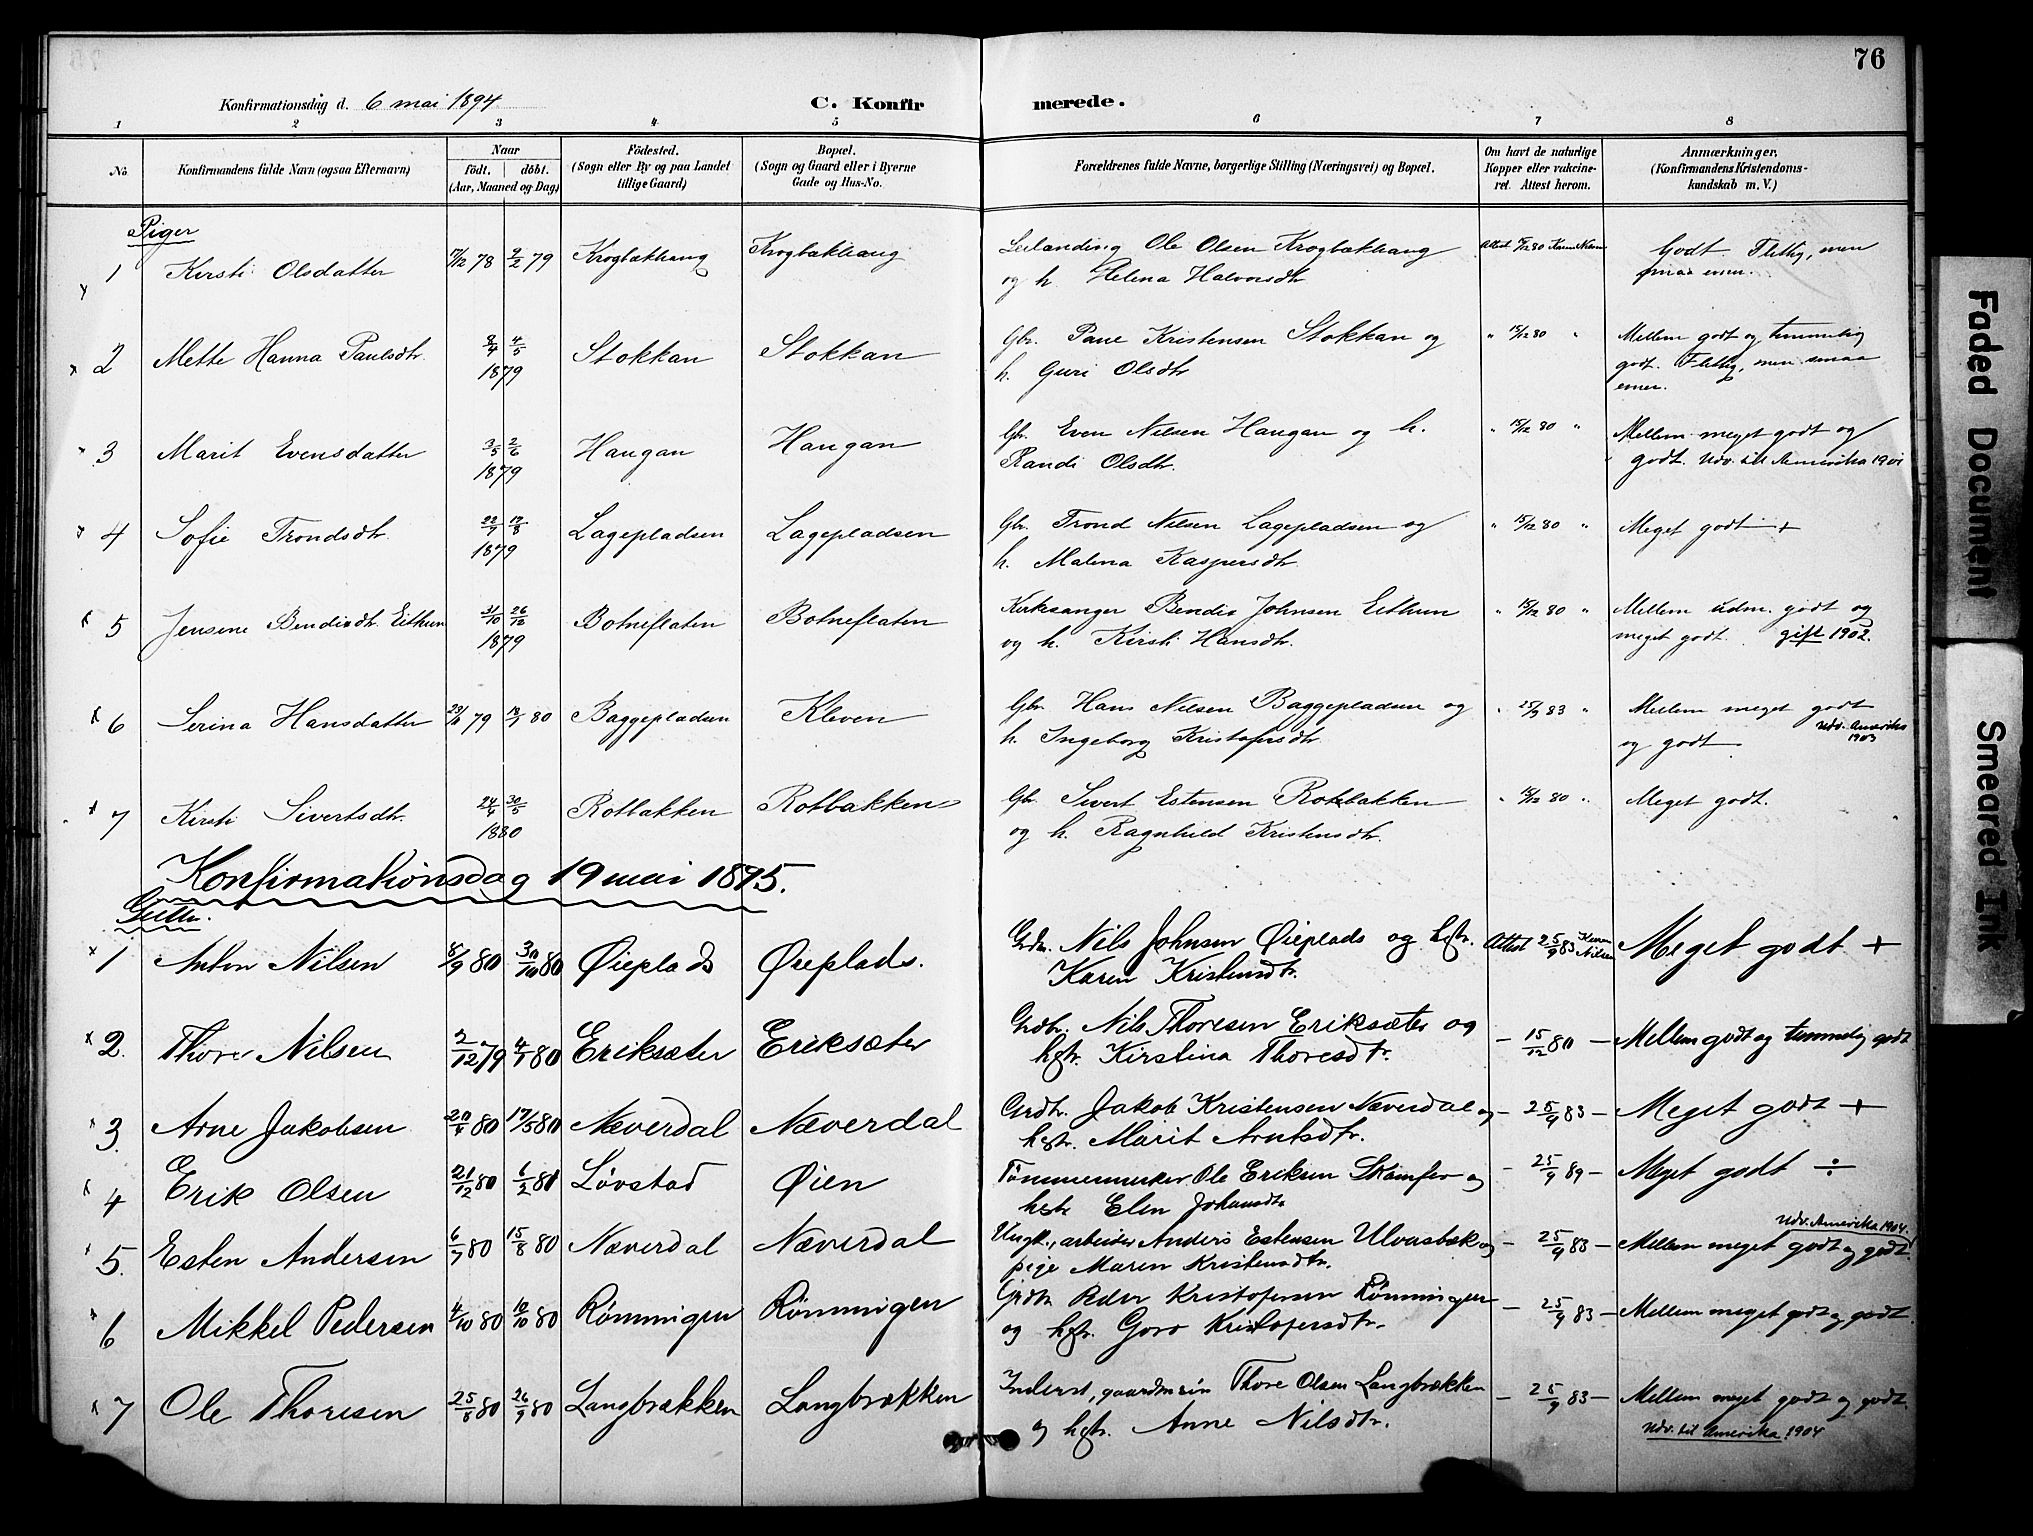 76
Konfirmationsdag d. 6 mai 1894
C. Konfirmerede.
1 2 3 4 5 6 7 8
No.
Konfirmandens fulde Navn (ogsaa Efternavn)
Naar
født. døbt.
(Aar, Maaned og Dag)
Fødested.
(Sogn eller By og paa Landet
tillige Gaard)
Bopæl.
(Sogn og Gaard eller i Byerne
Gade og Hus-No.
Forældrenes fulde Navne, borgerlige Stilling (Næringsvei) og Bopæl.
Om havt de naturlige
Kopper eller vakcine-
ret. Attest herom.
Anmærkninger.
(Konfirmandens Kristendoms-
kundskab m. V.)
Piger
1 Kirsti Olsdatter 17/12 78 9/2 79 Krogbækhaug Krogbækhaug Ole Olsen Krogbækhaug Attest 15/12 80 Godt. Flittig, men
og h. Helena Halvorsdtr smaa evner.
2 Mette Hanna Paulsdtr. 8/4 4/5 Stokkan Stokkan Gbr. Paue Kristensen Stokkan og " 15/12 80 " Mellem godt og temmelig
1879 h. Guri Olsdtr godt. Flittig, men smaa
evner.
3 Marit Evensdatter 3/5 2/6 Haugan Haugan Gbr. Even Nilsen Haugan og h. " 15/12 80 " Mellem meget godt og
1879 Randi Olsdtr. godt. Udv. til Amerika 1901
4 Sofie Trondsdtr. 22/7 17/8 Lagepladsen Lagepladsen Gbr. Trond Nilsen Lagepladsen og " 15/12 80 " Meget godt +
1879 h. Malena Kaspersdtr.
5 Jensine Bendixdtr. Eithun 31/10 26/12 Botneflaten Botneflaten Kirkesanger Bendix Johnsen Eithun " 15/12 80 " Mellem udm. godt og
1879 og h. Kirsti Hansdtr. meget godt. gift 1902.
6 Serina Hansdatter 79 18/1 80 Baggepladsen Kleven Gbr. Hans Nilsen Baggepladsen og " 25/9 83 " Mellem meget godt
h. Ingeborg Kristofersdtr. og godt. Udv. Amerika
1903
7 Kirsti Sivertsdtr. 24/4 30/5 Rotbakken Rotbakken Gbr. Sivert Estensen Rotbakken " 15/12 80 " Meget godt.
1880 og h. Ragnhild Kristensdtr.
Konfirmationsdag 19 mai 1895.
Gutter.
1 Anton Nilsen 8/9 80 30/10 80 Øieplads Øieplads. Grdbr. Nils Johnsen Øieplads og hstr. Attest 25/9 83 Karen Nilsen Meget godt +
Karen Kristensdtr.
2. Thore Nilsen 2/12 79 4/1 80 Eriksæter Eriksæter Grdbr. Nils Thoresen Eriksæter og – 15/12 80 – Mellem godt og temmelig godt
hstr. Kirstina Thoresdtr.
3. Arne Jakobsen 20/4 80 17/5 80 Næverdal Næverdal Grdbr. Jakob Kristensen Næverdal og – 25/9 83 – Meget godt +
hstr. Marit Arntsdtr.
4 Erik Olsen 21/12 80 6/2 81 Løvstad Øien Tømmermerker Ole Eriksen Skamfer og – 25/9 89 – Meget godt ÷
hstr. Elen Johansdtr
5. Esten Andersen 6/7 80 15/8 80 Næverdal Næverdal Ungk., arbeider Anders Estensen Ulvasbæk og – 25/9 83 – Mellem meget godt og godt. Udv. Amerika 1904.
pige Maren Kristensdtr.
6 Mikkel Pedersen 4/10 80 10/10 80 Rønningen Rønningen Grdbr. Peder Kristofersen Rønningen – 25/9 83 – Mellem meget godt og godt.
og hstr. Goro Kristofersdtr.
7 Ole Thoresen 25/8 80 26/9 80 Langbrækken Langbrækken Inderst, gaardmsøn Thore Olsen Langbrækken – 25/9 83 – Mellem meget godt og godt.
og hstr. Anne Nilsdtr. Udv. til Amerika 1904
Faded Document
Smeared Ink